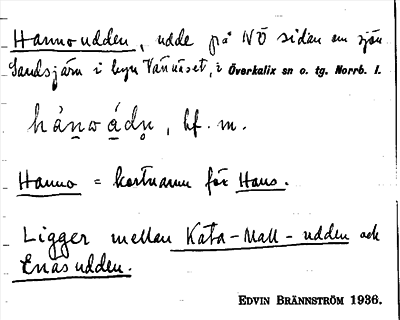 Hanno udden, udde på NÖ sidan om sjön
Sandsjärv i byn Vännäset, i Överkalix sn o. tg. Norrb. l.
hánω ádn̥, bf. m.
Hanno = kortnamn för Hans.
Ligger mellan Kata-Mall-udden och
Enas udden.
EDVIN BRÄNNSTRÖM 1936.